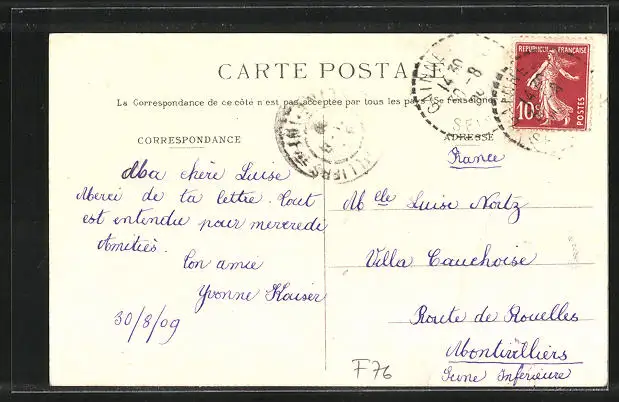 CARTE POSTALE
La Correspondance de ce côté n'est pas acceptée par tous les pays (Se renseigner
CORRESPONDANCE
ADRESSE
REPUBLIQUE FRANÇAISE
10c
POSTES
14 30
30 -8
SEINE
France
Ma chère Luise
Merci de ta lettre. Tout
est entendu pour mercredi
Amitiés.
Ton amie
Yvonne Kauser
30/8/09
Melle Luise Nortz
Villa Cauchoise
Route de Rouelles
Montivilliers
Seine Inférieure
F76